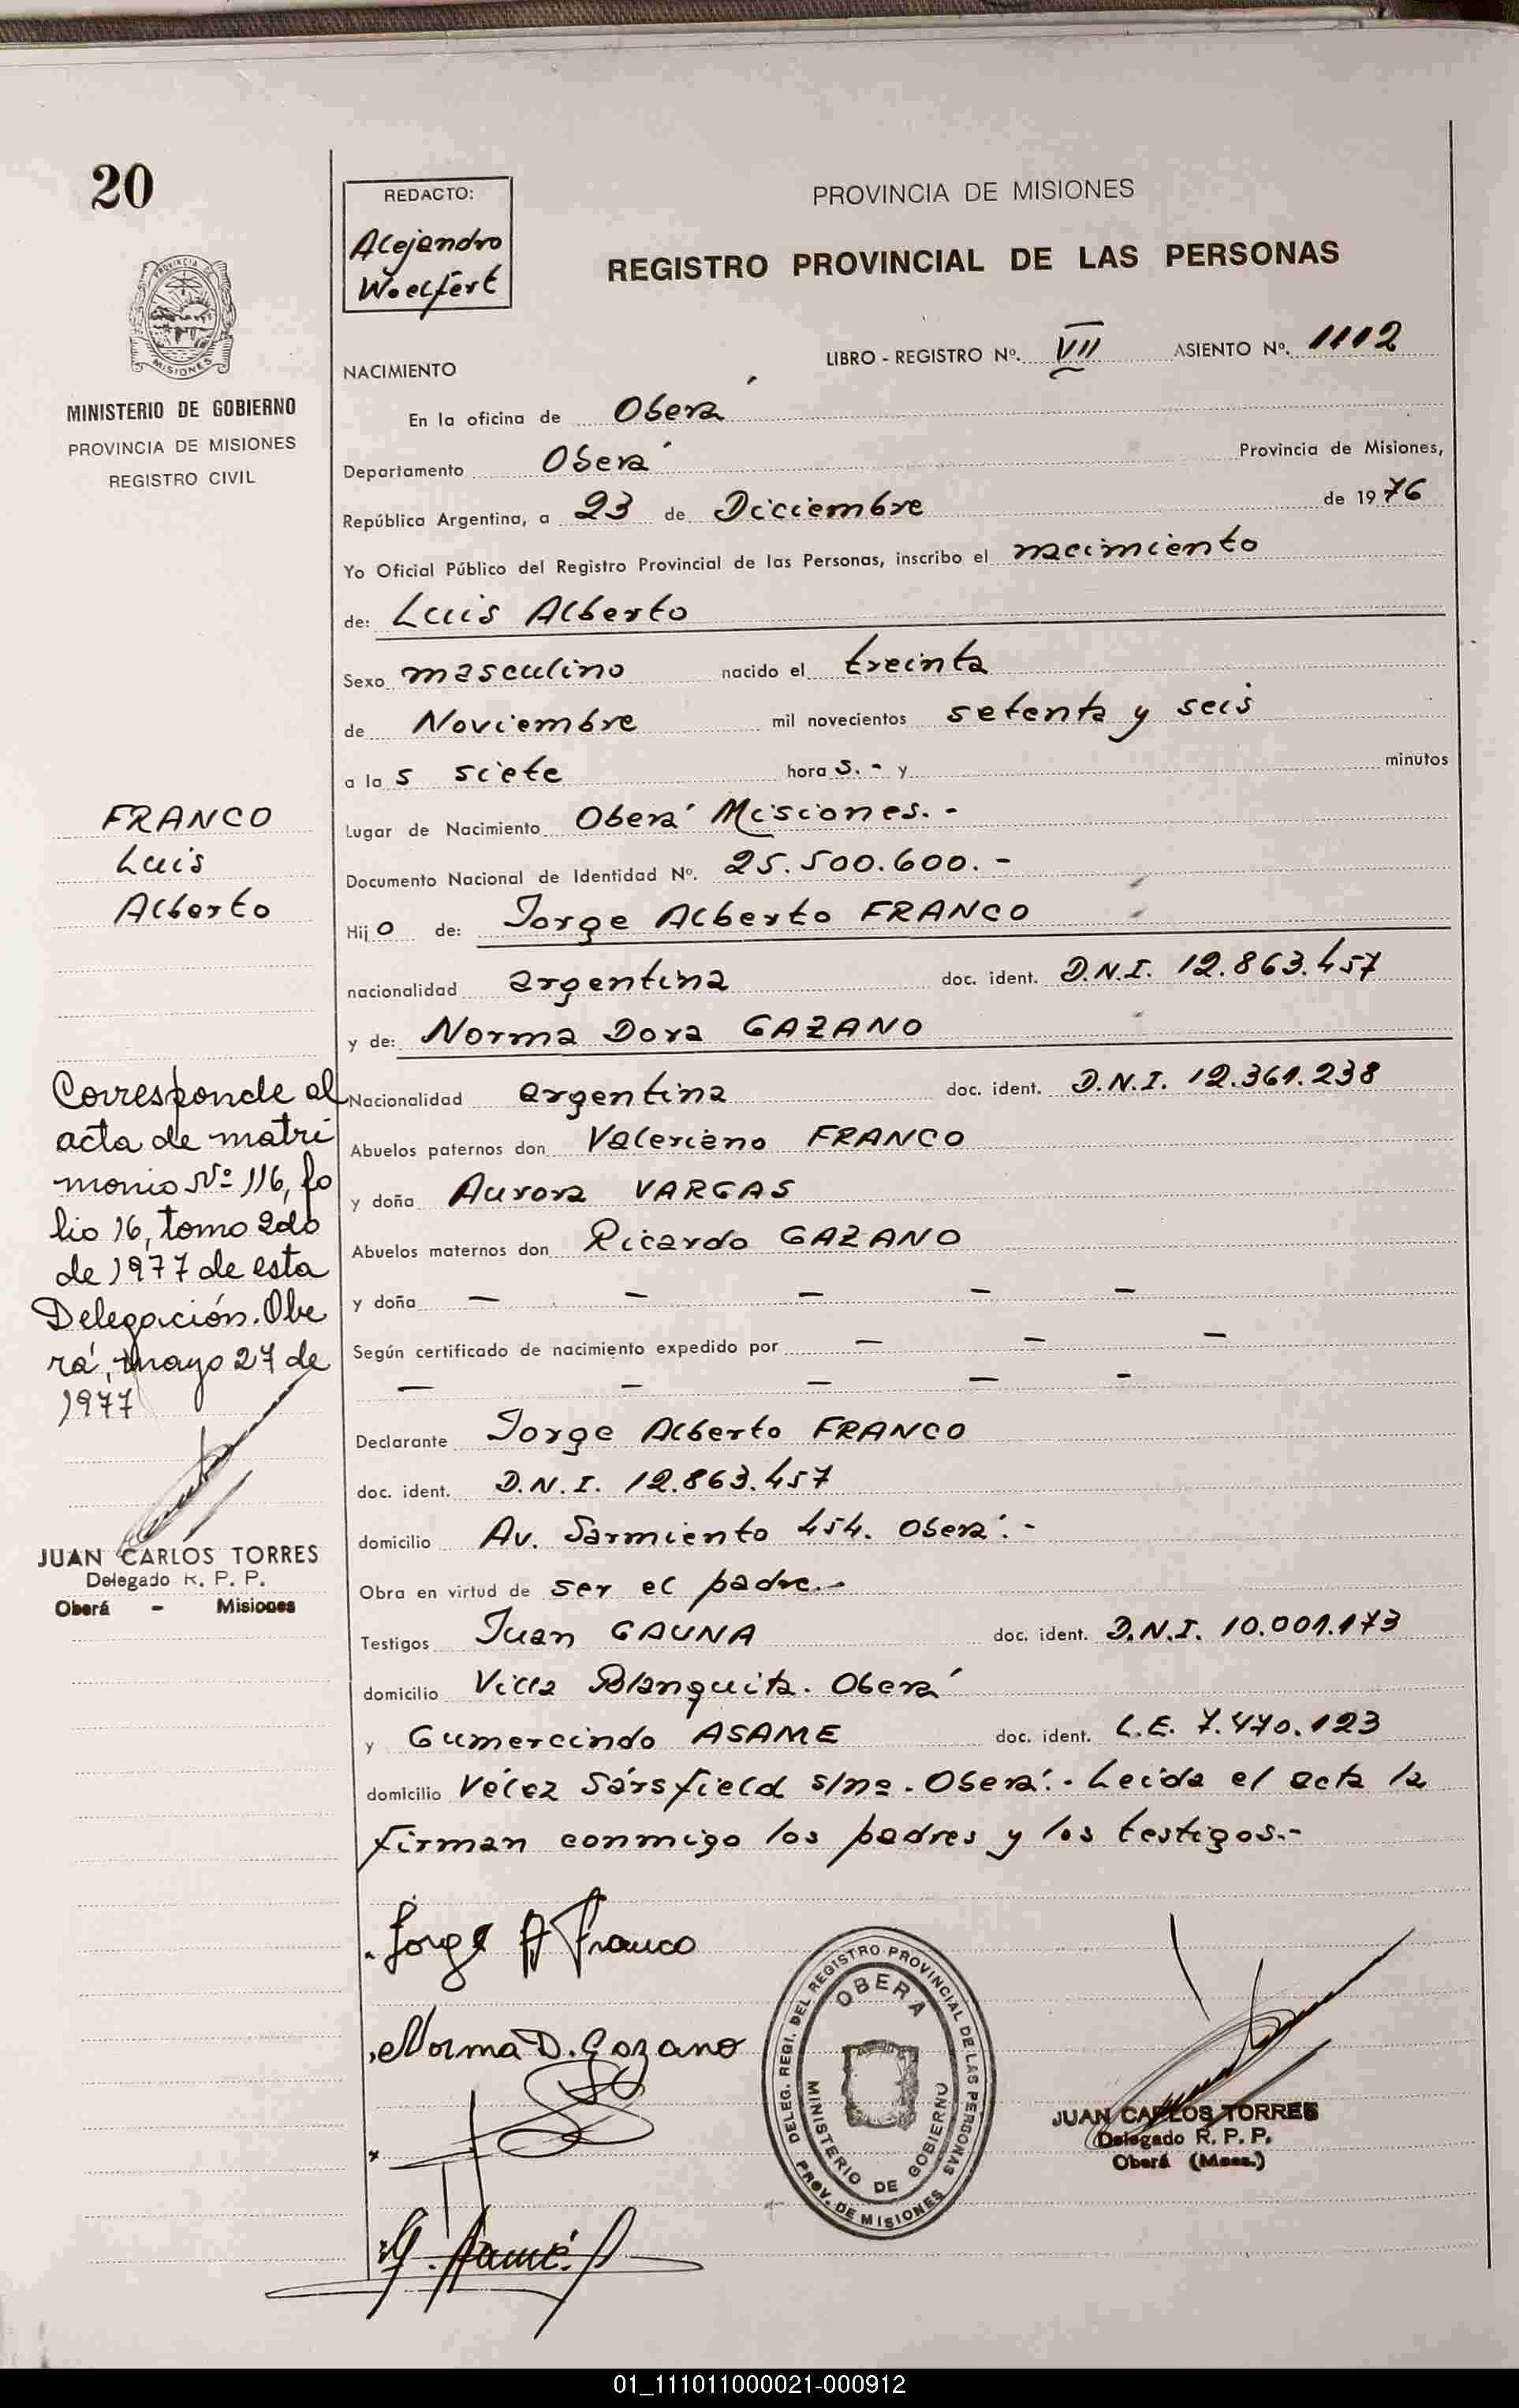 20
PROVINCIA DE
MISIONES
MINISTERIO DE GOBIERNO
PROVINCIA DE MISIONES
REGISTRO CIVIL
REDACTO:
Alejandro
Woelfert
PROVINCIA DE MISIONES
REGISTRO PROVINCIAL DE LAS PERSONAS
LIBRO - REGISTRO Nº. VII ASIENTO Nº. 1112
NACIMIENTO
En la oficina de Oberá
Departamento Oberá Provincia de Misiones,
República Argentina, a 23 de Diciembre de 1976
Yo Oficial Público del Registro Provincial de las Personas, inscribo el nacimiento
de: Luis Alberto
Sexo masculino nacido el treinta
de Noviembre mil novecientos setenta y seis
a las siete horas.- y minutos
Lugar de Nacimiento Oberá Misiones.-
Documento Nacional de Identidad Nº. 25.500.600.-
Hijo de: Jorge Alberto FRANCO
nacionalidad argentina doc. ident. D.N.I. 12.863.457
y de: Norma Dora GAZANO
Nacionalidad argentina doc. ident. D.N.I. 12.361.238
Abuelos paternos don Valeriano FRANCO
y doña Aurora VARGAS
Abuelos maternos don Ricardo GAZANO
y doña — — — — —
Según certificado de nacimiento expedido por — — —
— — — — -
Declarante Jorge Alberto FRANCO
doc. ident. D.N.I. 12.863.457
domicilio Av. Sarmiento 454. Oberá.-
Obra en virtud de ser el padre.-
Testigos Juan GAUNA doc. ident. D.N.I. 10.001.173
domicilio Villa Blanquita. Oberá
y Gumercindo ASAME doc. ident. L.E. 7.470.123
domicilio Vélez Sársfield s/nº.-Oberá.- Leída el acta la
firman conmigo los padres y los testigos.-
FRANCO
Luis
Alberto
Corresponde al
acta de matri
monio Nº 116, fo
lio 16, tomo 2do
de 1977 de esta
Delegación. Obe
rá, mayo 27 de
1977
JUAN CARLOS TORRES
Delegado R. P. P.
Oberá - Misiones
Jorge A Franco
Norma D. Gazano
DELEG. REGI. DEL REGISTRO PROVINCIAL DE LAS PERSONAS
PROV. DE MISIONES
OBERA
MINISTERIO DE GOBIERNO
JUAN CARLOS TORRES
Delegado R. P. P.
Oberá (Mnes.)
G. Asamé
01_111011000021-000912